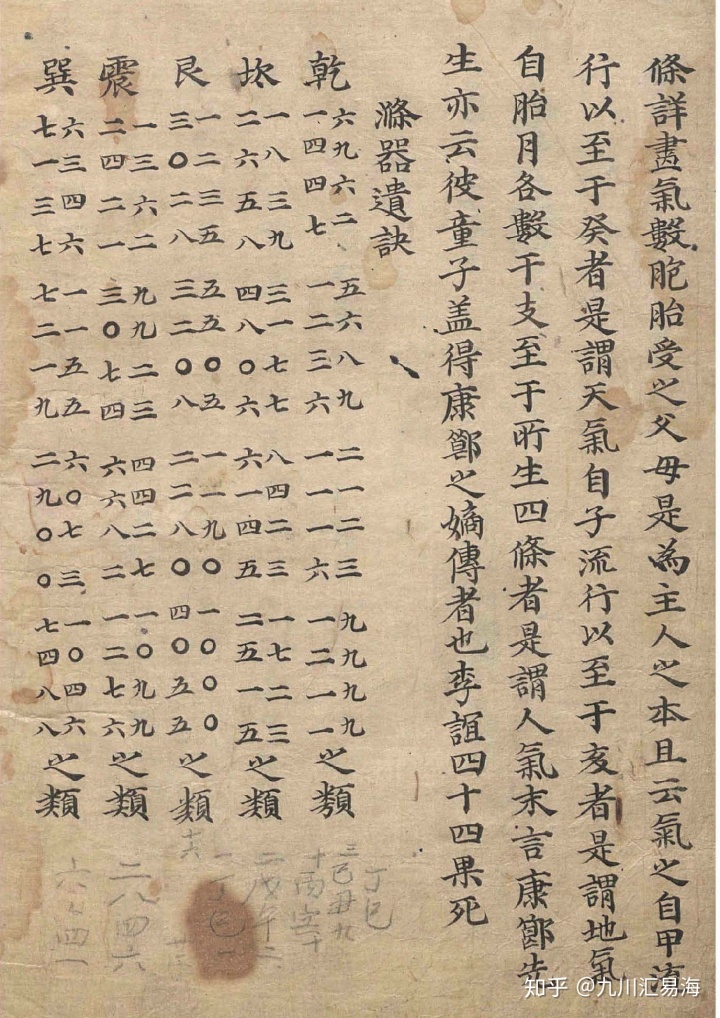 條詳盡氣數胞胎受之父母是為主人之本且云氣之自甲流
行以至于癸者是謂天氣自子流行以至于亥者是謂地氣
自胎月各數干支至于所生四條者是謂人氣末言康節先
生亦云彼童子盖得康節之嫡傳者也李誼四十四果死
滌器遺訣
乾 六九六二 一四四七 五六八九 一二三六 二一二三 一一一六 九九九九 一二一一 之類
坎 一八三九 二六五八 三一七七 四八〇六 八四二三 六一四五 一七二三 二五一五 之類
艮 一二三五 三〇二八 五五〇五 三二〇八 一一九〇 二二八〇 一〇〇〇 四〇五五 之類
震 一三六二 二四二一 九九二三 三〇七四 四四二七 六六八二 一〇九九 一二七六 之類
巽 六三四六 七一三七 一一五五 七二一九 六〇七三 二九〇〇 一〇四六 七四八八 之類
丁巳
三己丑九
二戊午二
一丁巳一
二八四六
知乎 @九川汇易海